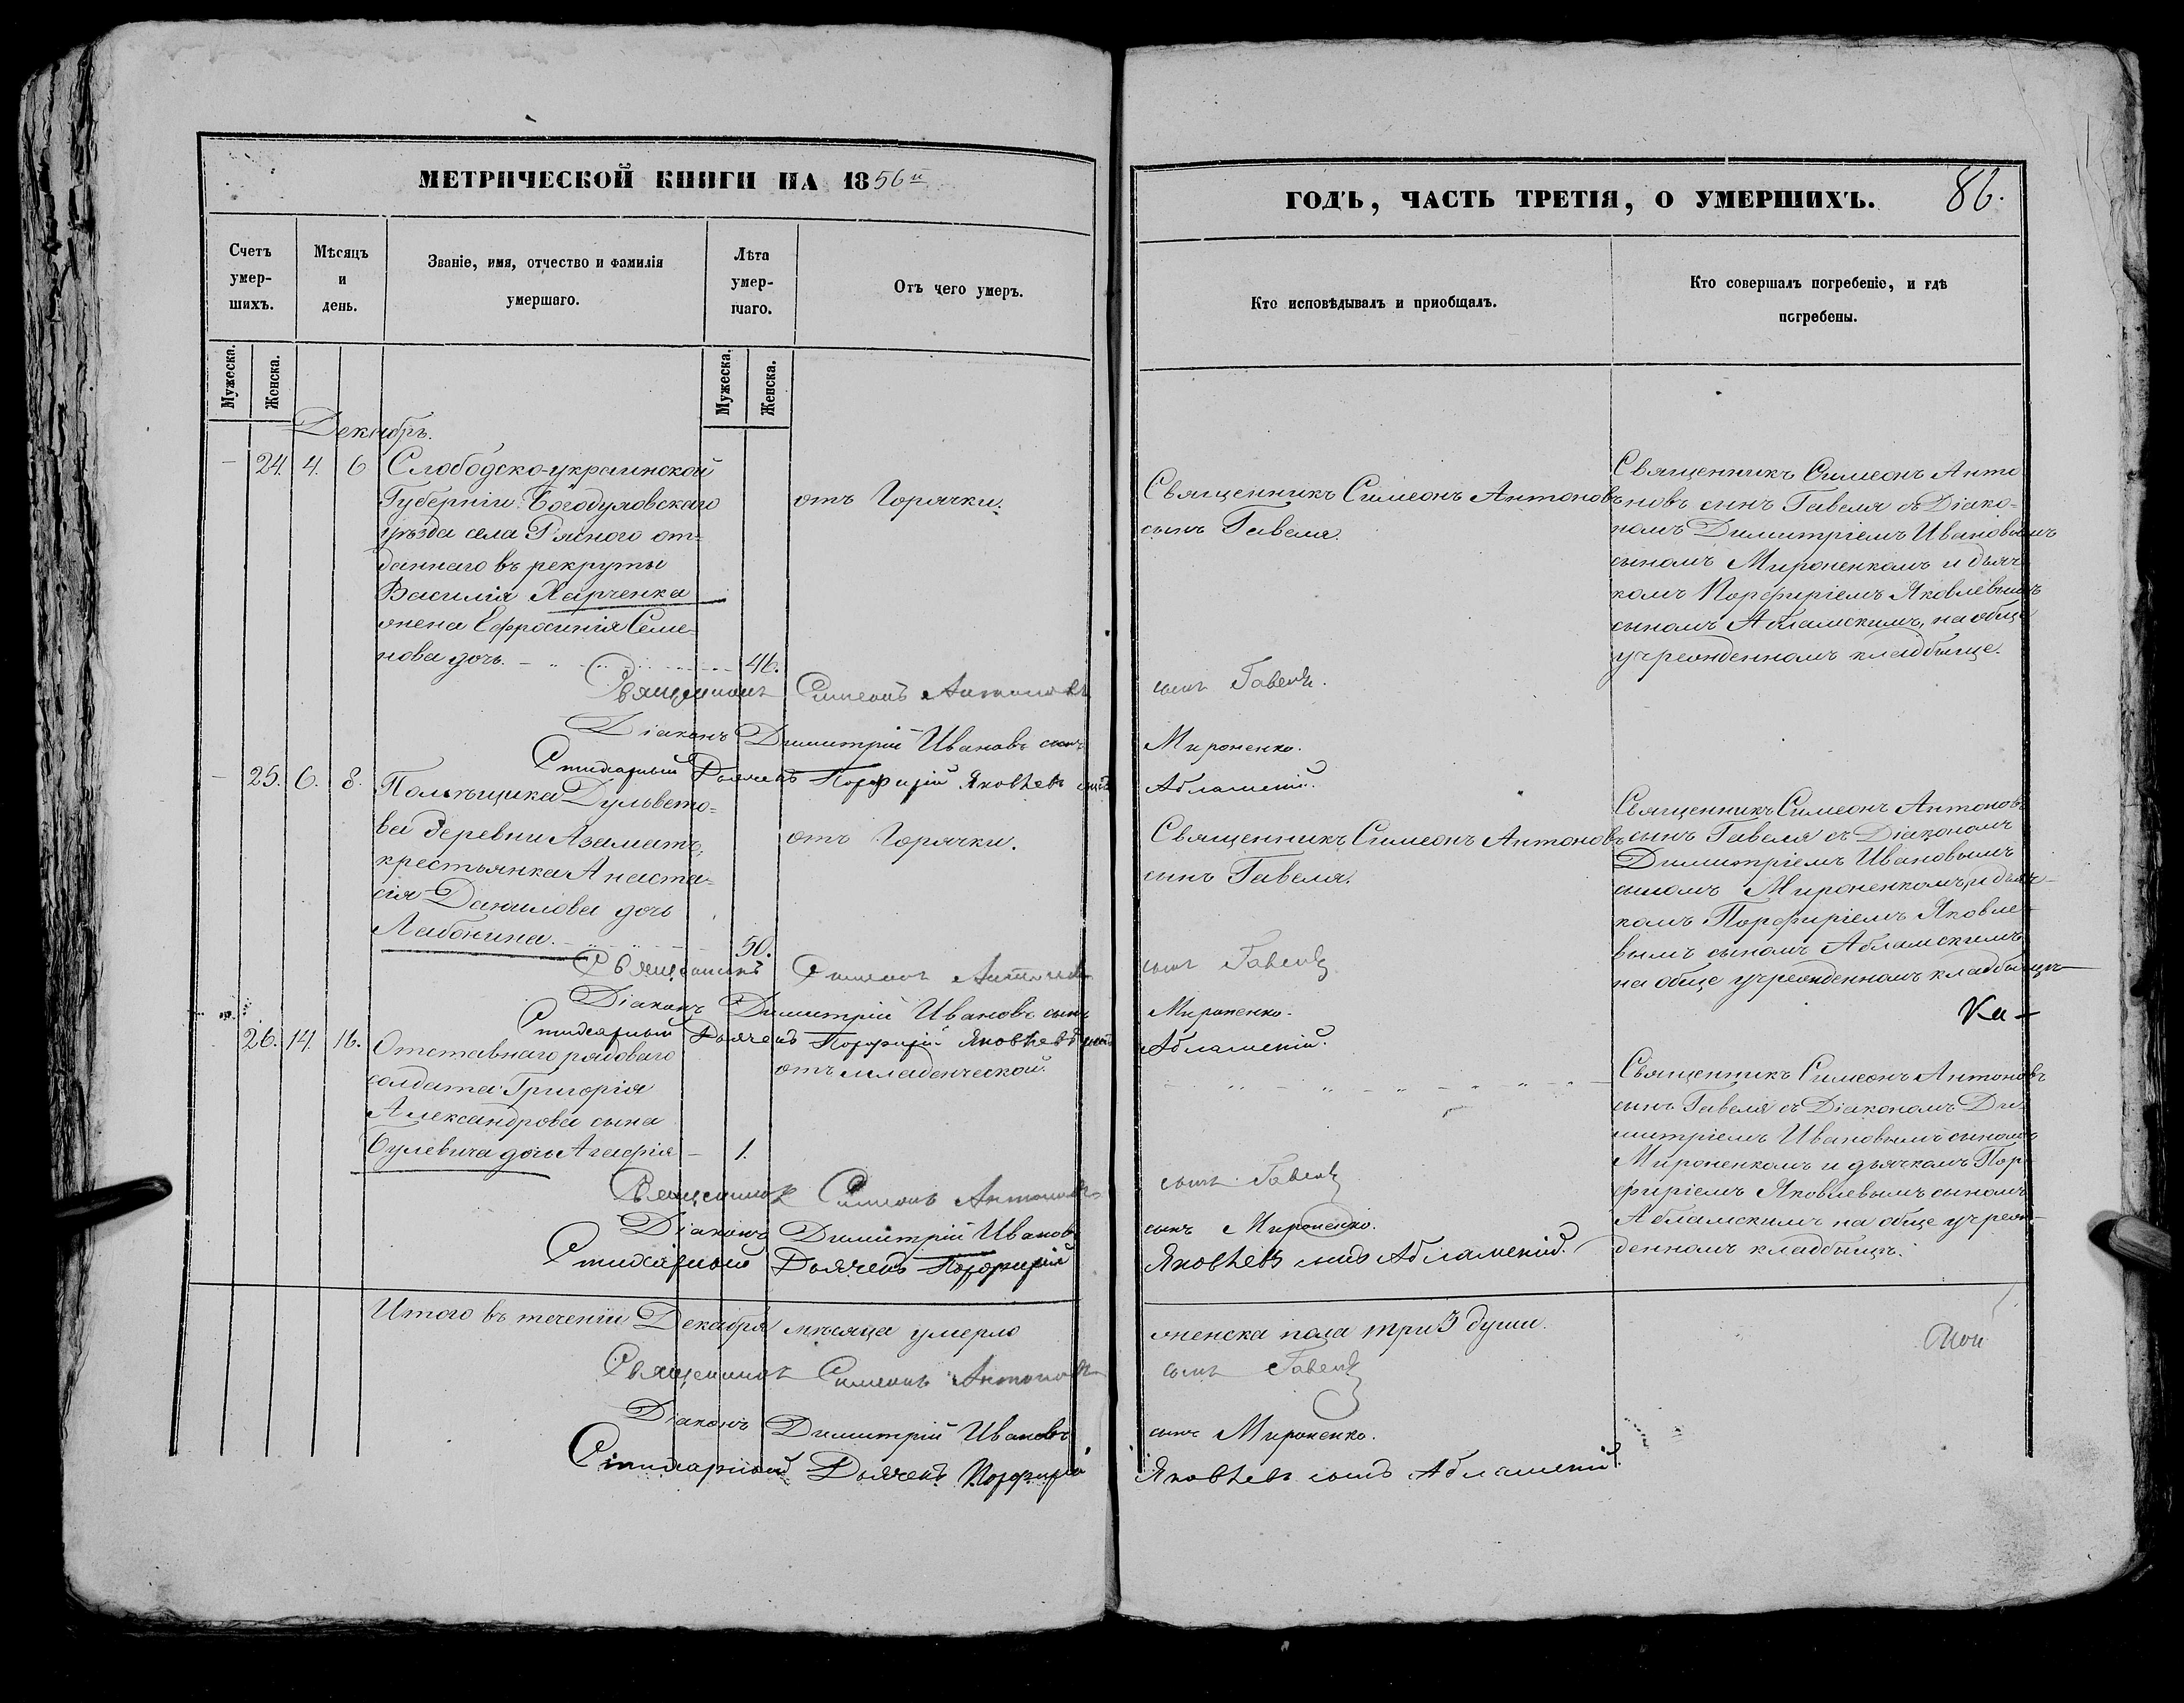 МЕТРИЧЕСКОЙ КНИГИ НА 1856й
Счетъ умер-шихъ.
Мѣсяцъ и день.
Званіе, имя, отчество и фамилія умершаго.
Лѣта умер-шаго.
Отъ чего умеръ.
Мужеска.
Женска.
Мужеска.
Женска.
Декабрь.
– 24. 4. 6 Слободско-украинской
Губерніи Богодуховскаго
уѣзда села Рясного от=
даннаго въ рекруты
Василія Харченка
жена Ефросинія Семе-
нова дочь. 46.
отъ Горячки.
Священникъ Симеонъ Антоновъ
Діаконъ Димитрій Ивановъ сынъ
Стихарный Дьячекъ Порфирій Яковлевъ сынъ
– 25. 6. 8. Помѣщика
ва деревни Азаматъ,
крестьянка Анаста=
сія Данилова дочь
Лабонина. 50.
отъ Горячки.
Священникъ Симеонъ Антоновъ
Діаконъ Димитрій Ивановъ сынъ
Стихарный Дьячекъ Порфирій Яковлевъ сынъ
26. 14. 16. Отставнаго рядоваго
солдата Григорія
Александрова сына
Булевича дочь Агафія – 1.
отъ младенческой.
Священникъ Симеонъ Антоновъ
Діаконъ Димитрій Ивановъ
Стихарный Дьячекъ Порфирій
Итого въ теченіи Декабря мѣсяца умерло
Священникъ Симеонъ Антоновъ
Діаконъ Димитрій Ивановъ
Стихарный Дьячекъ Порфирій
ГОДЪ, ЧАСТЬ ТРЕТІЯ, О УМЕРШИХЪ. 86.
Кто исповѣдывалъ и пріобщалъ.
Кто совершалъ погребеніе, и гдѣ погребены.
Священникъ Симеонъ Антоновъ
сынъ Гавеля.
Священникъ Симеонъ Анто
новъ сынъ Гавеля съ Діако-
номъ Димитріемъ Ивановымъ
сыномъ Мироненкомъ и дьяч
комъ Порфиріемъ Яковлевымъ
сыномъ Абламскимъ, на обще
учрежденномъ кладбище.
сынъ Гавеля.
Мироненко.
Абламскій.
Священникъ Симеонъ Антоновъ
сынъ Гавеля.
Священникъ Симеонъ Антоновъ
сынъ Гавеля съ Діакономъ
Димитріемъ Ивановымъ
сыномъ Мироненкомъ, и дьяч-
комъ Порфиріемъ Яковле-
вымъ сыномъ Абламскимъ
на обще учрежденномъ кладбищѣ
сынъ Гавеля
Мироненко.
Абламскій.
Ка-
Священникъ Симеонъ Антоновъ
сынъ Гавеля съ Діакономъ Ди-
митріемъ Ивановымъ сыномъ
Мироненкомъ и дьячкомъ Пор
фиріемъ Яковлевымъ сыномъ
Абламскимъ на обще учреж-
денномъ кладбищѣ.
сынъ Гавеля
сынъ Мироненко.
Яковлевъ сынъ Абламскій.
женска пола три 3 души.
сынъ Гавеля
сынъ Мироненко.
Яковлевъ сынъ Абламскій.